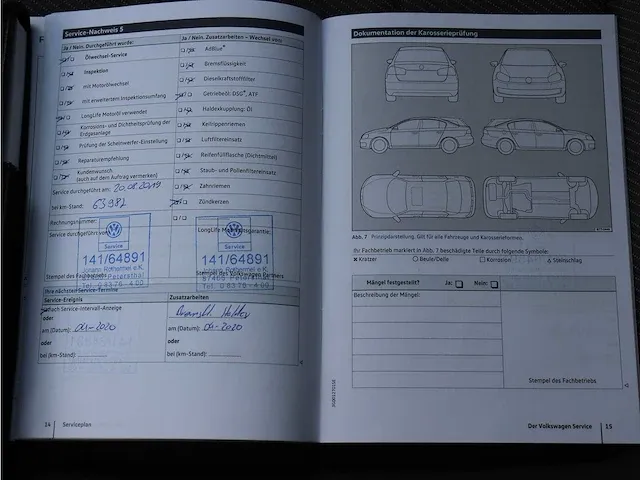 Service-Nachweis 5
Ja / Nein. Durchgeführt wurde:
Ölwechsel-Service
Inspektion
mit Motorölwechsel
mit erweitertem Inspektionsumfang
LongLife Motoröl verwendet
Korrosions- und Dichtheitsprüfung der
Erdgasanlage
Prüfung der Scheinwerfer-Einstellung
Reparaturempfehlung
Kundenwunsch,
(auch auf dem Auftrag vermerken)
Service durchgeführt am: 20.08.2019
bei km-Stand: 63982
Rechnungsnummer:
Service durchgeführt von:
Service
141/64891
Johann Rothermel e.K.
Tel. 0 83 76 - 4 00
Stempel des Fachbetriebs
Ja / Nein. Zusatzarbeiten - Wechsel von:
AdBlue®
Bremsflüssigkeit
Dieselkraftstofffilter
Getriebeöl: DSG®, ATF
Haldexkupplung: Öl
Keilrippenriemen
Luftfiltereinsatz
Reifenfüllflasche (Dichtmittel)
Staub- und Pollenfiltereinsatz
Zahnriemen
Zündkerzen
LongLife Mobilitätsgarantie:
Service
141/64891
Johann Rothermel e.K.
Tel. 0 83 76 - 4 00
Stempel des Volkswagen Partners
Ihre nächsten Service-Termine
Service-Ereignis
nach Service-Intervall-Anzeige
oder
am (Datum): 04-2020
oder
bei (km-Stand):
Zusatzarbeiten
am (Datum): 04-2020
oder
bei (km-Stand):
14 Serviceplan
Dokumentation der Karosserieprüfung
Abb. 7 Prinzipdarstellung. Gilt für alle Fahrzeuge und Karosserieformen.
Ihr Fachbetrieb markiert in Abb. 7 beschädigte Teile durch folgende Symbole:
× Kratzer ○ Beule/Delle □ Korrosion △ Steinschlag
Mängel festgestellt? Ja: Nein:
Beschreibung der Mängel:
Stempel des Fachbetriebs
Der Volkswagen Service 15